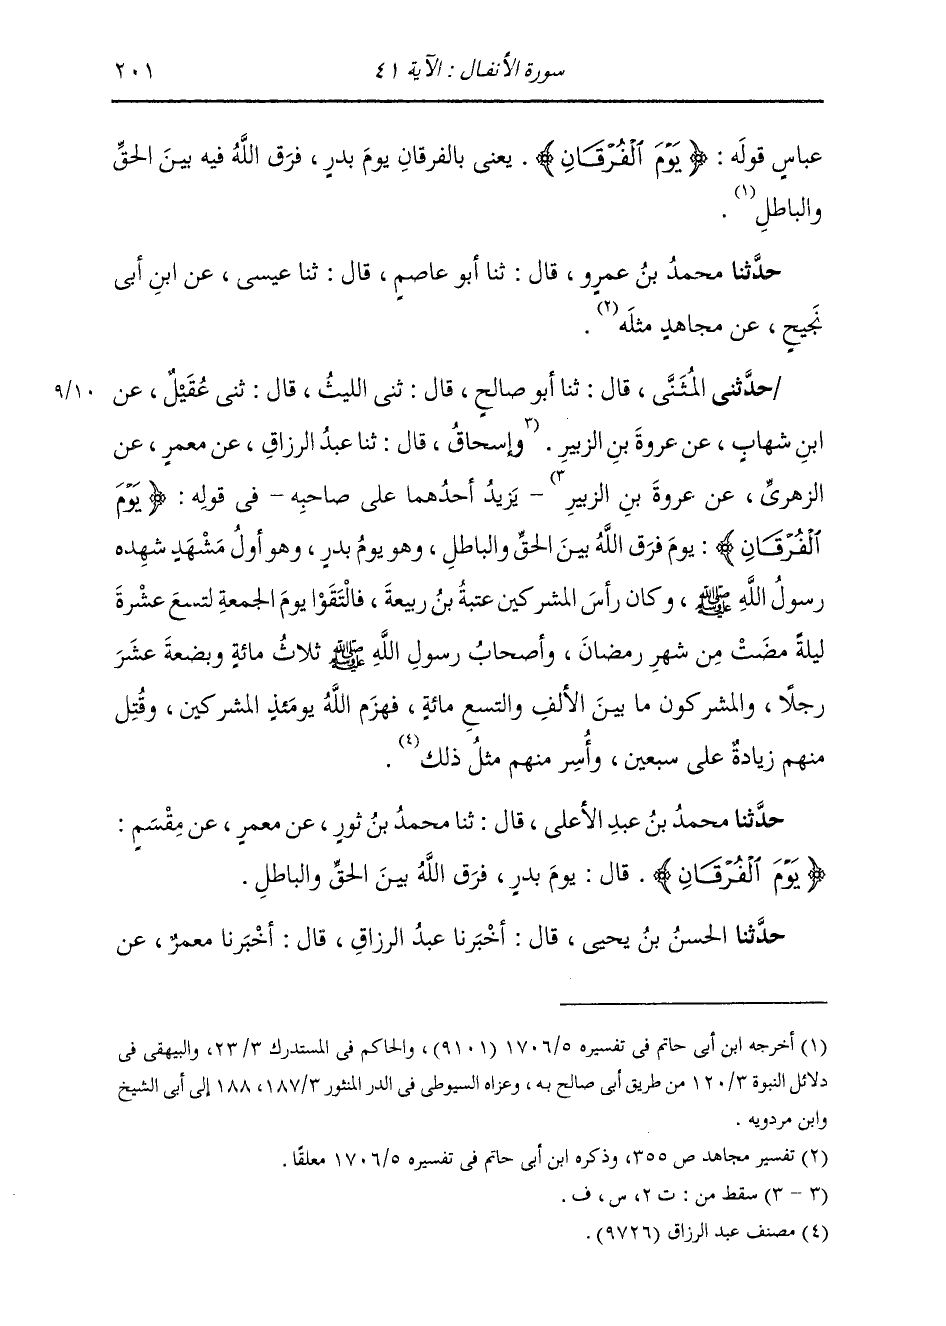 سورة الأنفال : الآية ٤١ ٢٠١
عباسٍ قولَه : ﴿ يَوْمَ ٱلْفُرْقَـانِ ﴾ . يعنى بالفرقانِ يومَ بدرٍ ، فرَق اللَّهُ فيه بينَ الحقِّ
والباطلِ(١) .
حدَّثنا محمدُ بنُ عمرٍو ، قال : ثنا أبو عاصمٍ ، قال : ثنا عيسى ، عن ابنِ أبى
نَجيحٍ ، عن مجاهدٍ مثلَه(٢) .
/حدَّثنى المُثَنَّى ، قال : ثنا أبو صالحٍ ، قال : ثنى الليثُ ، قال : ثنى عُقَيْلٌ ، عن ٩/١٠
ابنِ شهابٍ ، عن عروةَ بنِ الزبيرِ . (٣وإسحاقُ ، قال : ثنا عبدُ الرزاقِ ، عن معمرٍ ، عن
الزهرىِّ ، عن عروةَ بنِ الزبيرِ٣) – يَزيدُ أحدُهما على صاحبِه – فى قولِه : ﴿ يَوْمَ
ٱلْفُرْقَـانِ ﴾ : يومَ فرَق اللَّهُ بينَ الحقِّ والباطلِ ، وهو يومُ بدرٍ ، وهو أولُ مَشْهَدٍ شهِده
رسولُ اللَّهِ ﷺ ، وكان رأسَ المشركين عتبةُ بنُ ربيعةَ ، فالْتَقَوْا يومَ الجمعةِ لتسعَ عشْرةَ
ليلةً مضَتْ مِن شهرِ رمضانَ ، وأصحابُ رسولِ اللَّهِ ﷺ ثلاثُ مائةٍ وبضعةَ عشَرَ
رجلًا ، والمشركون ما بينَ الألفِ والتسعِ مائةٍ ، فهزَم اللَّهُ يومَئذٍ المشركين ، وقُتِل
منهم زيادةٌ على سبعين ، وأُسِر منهم مثلُ ذلك(٤) .
حدَّثنا محمدُ بنُ عبدِ الأعلى ، قال : ثنا محمدُ بنُ ثورٍ ، عن معمرٍ ، عن مِقْسَمٍ :
﴿ يَوْمَ ٱلْفُرْقَـانِ ﴾ . قال : يومَ بدرٍ ، فرَق اللَّهُ بينَ الحقِّ والباطلِ .
حدَّثنا الحسنُ بنُ يحيى ، قال : أخْبَرنا عبدُ الرزاقِ ، قال : أخْبَرنا معمرٌ ، عن
(١) أخرجه ابن أبى حاتم فى تفسيره ١٧٠٦/٥ (٩١٠١) ، والحاكم فى المستدرك ٢٣/٣، والبيهقى فى
دلائل النبوة ١٢٠/٣ من طريق أبى صالح به ، وعزاه السيوطى فى الدر المنثور ١٨٧/٣، ١٨٨ إلى أبى الشيخ
وابن مردويه .
(٢) تفسير مجاهد ص ٣٥٥، وذكره ابن أبى حاتم فى تفسيره ١٧٠٦/٥ معلقًا .
(٣ – ٣) سقط من : ت ٢، س ، ف .
(٤) مصنف عبد الرزاق (٩٧٢٦) .